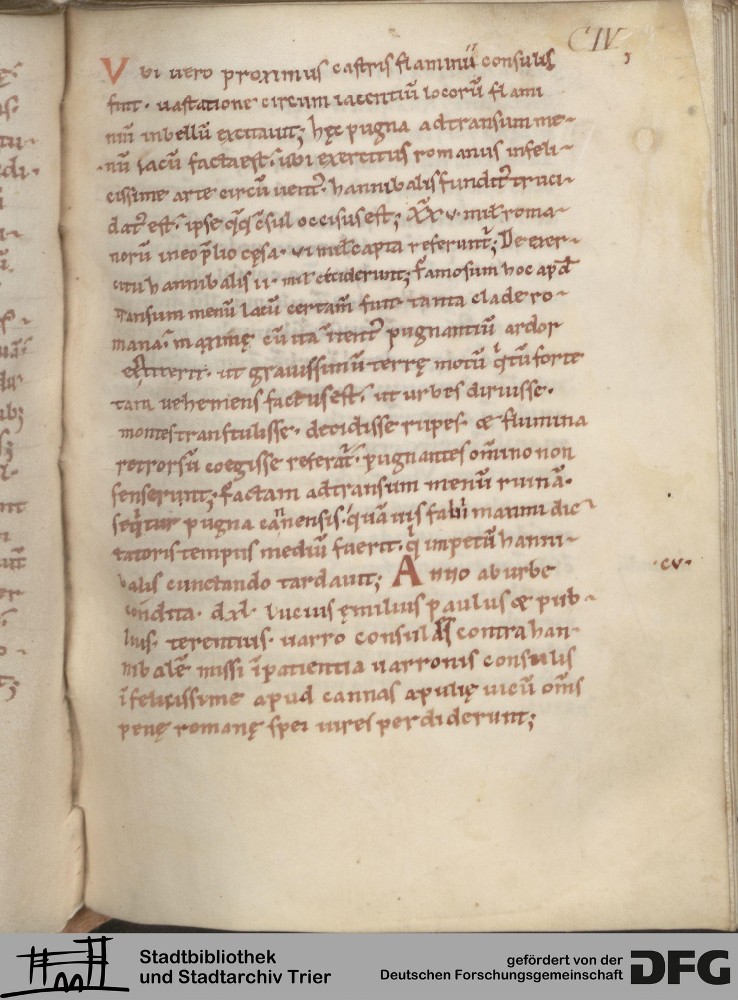 CIV
Vbi uero proximus castris flaminiī consulis
fuit. uastatione circum iacentiū locorū flami
niū inbellū excitauit; hęc pugna adtransumme-
nū lacū facta est. ubi exercitus romanus infeli-
cissime arte circū uent᷒. hannibalis fundit᷒ truci-
dat᷒ est. ipse q̨q̨ c̄sul occisus est; x̄x̄v. mil̄ roma-
norū ineo p̄lio cęsa. vi mil̄ capta referunt᷒; De exer-
citu hannibalis ii. mil̄ ceciderunt; famosum hoc apd̄
transum menū lacū certam̄ fuit tanta clade ro-
mana. maximę cū ita īnent᷒ pugnantiū ardor
extiterit. ut grauissimū terrę motū q̄ tū forte
tam uehemens factus est. ut urbes diruisse.
montes transtulisse. decidisse rupes. & flumina
retrorsū coegisse referat᷒. pugnantes om̄ino non
senserunt; factam adtransum menū ruinā.
seq̄tur pugna cannensis. quāuis fabii maximi dic-
tatoris tempus mediū fuerit. q̄ impetū hanni-
balis cunctando tardauit; Anno ab urbe
.cv.
condita. dxl. lucius ęmilius paulus & pub-
lius. terentius. uarro consulAS contra han-
nibalē missi īpatientia uarronis consulis
īfelicissime apud cannas apulię uicū om̄s
penę romanę spei uires perdiderunt;
Stadtbibliothek
und Stadtarchiv Trier
gefördert von der
Deutschen Forschungsgemeinschaft
DFG